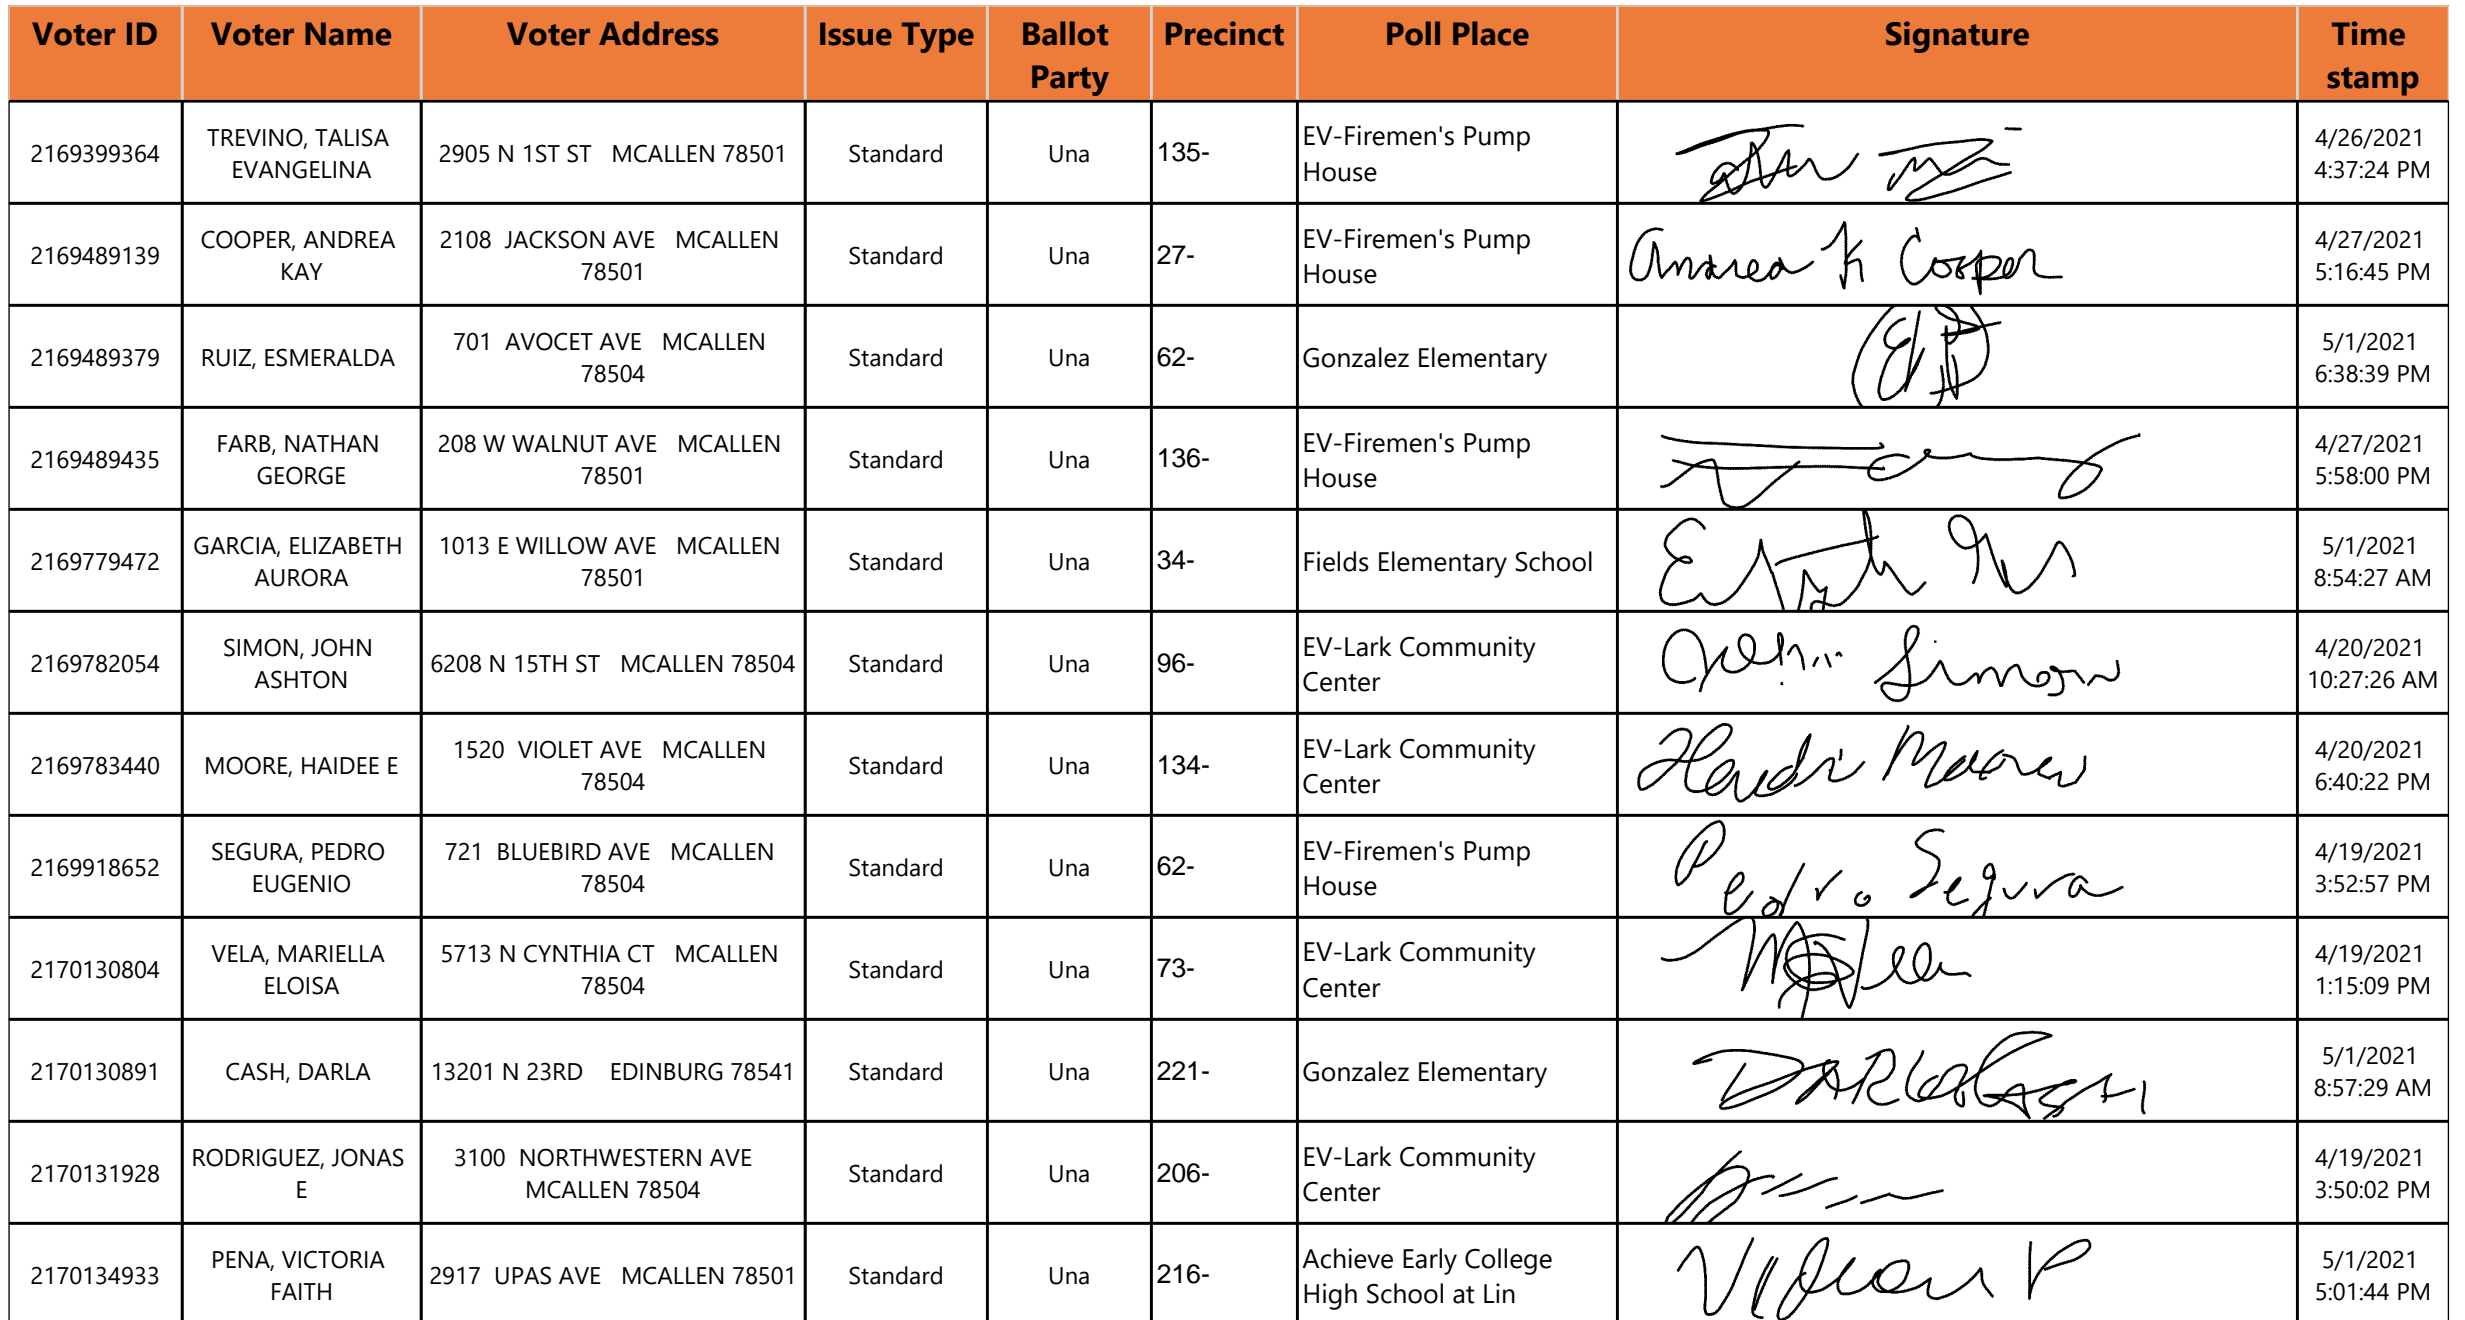 Voter ID Voter Name Voter Address Issue Type Ballot Party Precinct Poll Place Signature Time stamp
2169399364 TREVINO, TALISA EVANGELINA 2905 N 1ST ST MCALLEN 78501 Standard Una 135- EV-Firemen's Pump House 4/26/2021 4:37:24 PM
2169489139 COOPER, ANDREA KAY 2108 JACKSON AVE MCALLEN 78501 Standard Una 27- EV-Firemen's Pump House Andrea K Cooper 4/27/2021 5:16:45 PM
2169489379 RUIZ, ESMERALDA 701 AVOCET AVE MCALLEN 78504 Standard Una 62- Gonzalez Elementary 5/1/2021 6:38:39 PM
2169489435 FARB, NATHAN GEORGE 208 W WALNUT AVE MCALLEN 78501 Standard Una 136- EV-Firemen's Pump House 4/27/2021 5:58:00 PM
2169779472 GARCIA, ELIZABETH AURORA 1013 E WILLOW AVE MCALLEN 78501 Standard Una 34- Fields Elementary School 5/1/2021 8:54:27 AM
2169782054 SIMON, JOHN ASHTON 6208 N 15TH ST MCALLEN 78504 Standard Una 96- EV-Lark Community Center John Simon 4/20/2021 10:27:26 AM
2169783440 MOORE, HAIDEE E 1520 VIOLET AVE MCALLEN 78504 Standard Una 134- EV-Lark Community Center 4/20/2021 6:40:22 PM
2169918652 SEGURA, PEDRO EUGENIO 721 BLUEBIRD AVE MCALLEN 78504 Standard Una 62- EV-Firemen's Pump House Pedro Segura 4/19/2021 3:52:57 PM
2170130804 VELA, MARIELLA ELOISA 5713 N CYNTHIA CT MCALLEN 78504 Standard Una 73- EV-Lark Community Center 4/19/2021 1:15:09 PM
2170130891 CASH, DARLA 13201 N 23RD EDINBURG 78541 Standard Una 221- Gonzalez Elementary DARLA CASH 5/1/2021 8:57:29 AM
2170131928 RODRIGUEZ, JONAS E 3100 NORTHWESTERN AVE MCALLEN 78504 Standard Una 206- EV-Lark Community Center 4/19/2021 3:50:02 PM
2170134933 PENA, VICTORIA FAITH 2917 UPAS AVE MCALLEN 78501 Standard Una 216- Achieve Early College High School at Lin 5/1/2021 5:01:44 PM